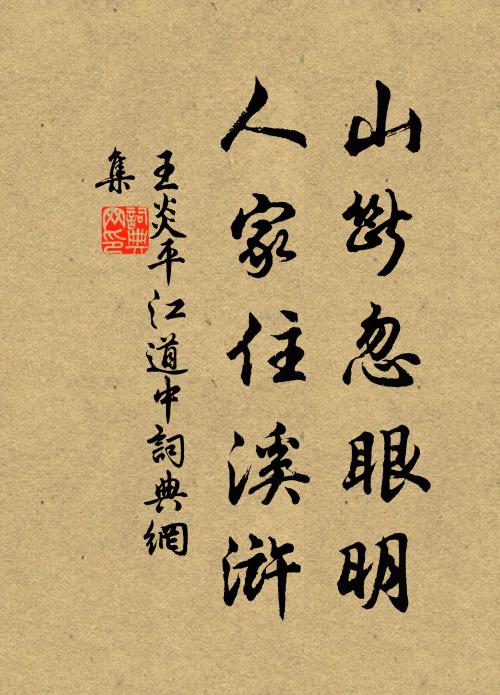 山斷忽眼明
人家住溪滸
王炎平江道中詞典網
集
詞典
網印